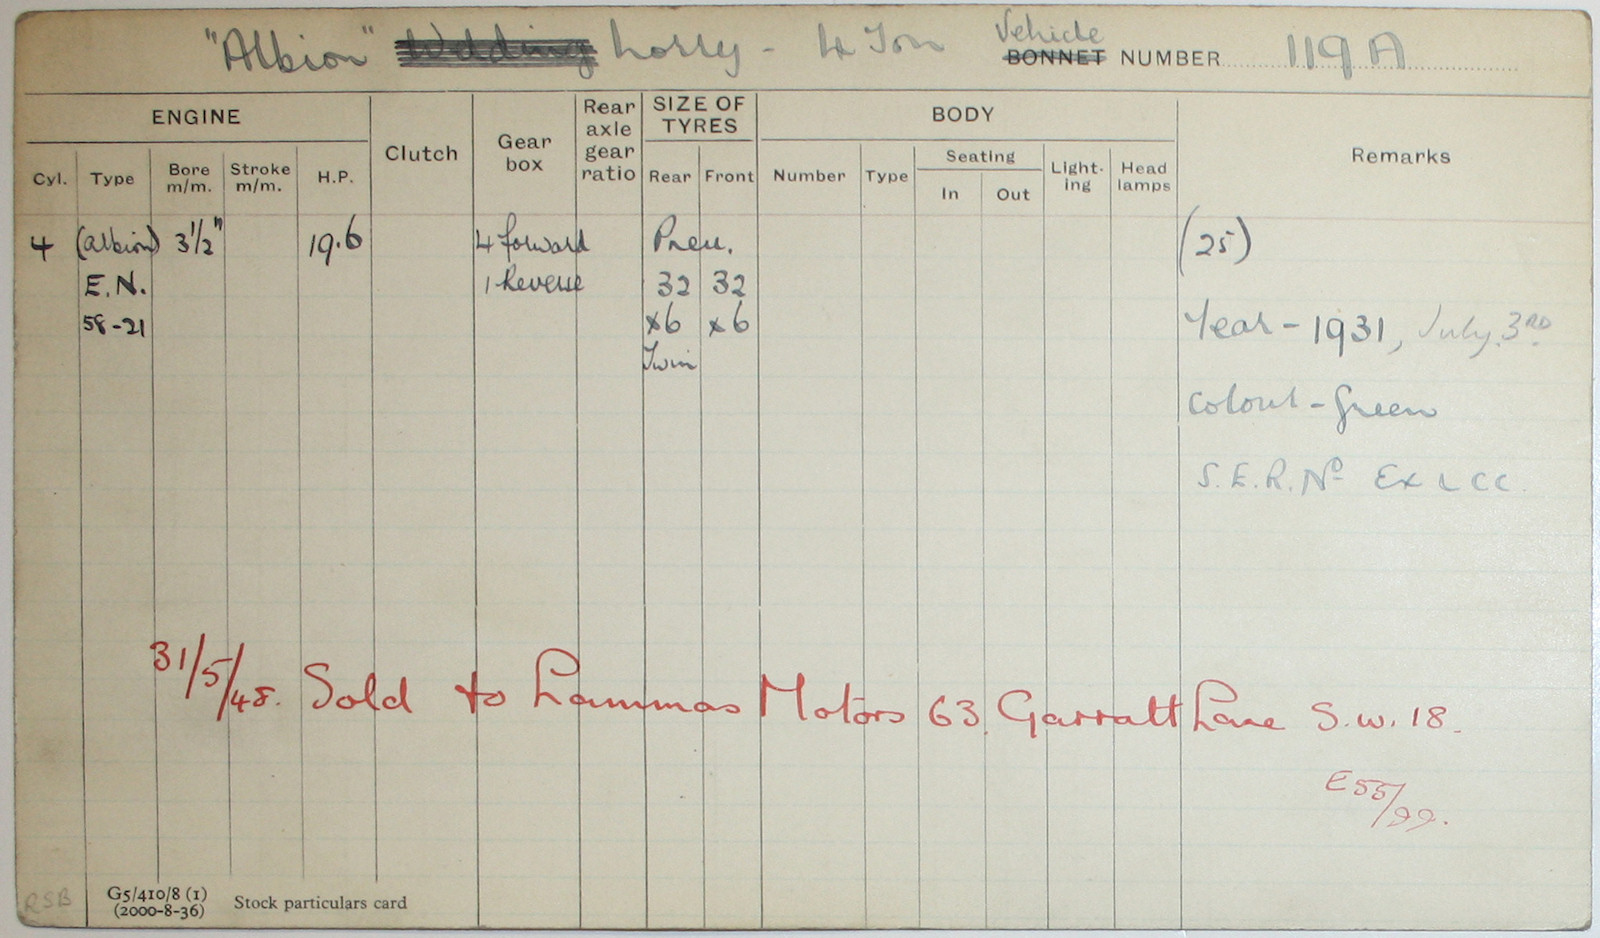 "Albion" Welding Lorry - 4 Ton Vehicle BONNET NUMBER 119 A
ENGINE Clutch Gear box Rear axle gear ratio SIZE OF TYRES BODY Remarks
Cyl. Type Bore m/m. Stroke m/m. H.P. Rear Front Number Type Seating In Out Light-ing Head lamps
4 (Albion) 3½" 19.6 4 forward Pneu. (25)
E.N. 1 Reverse 32 32
58-21 x6 x6 Year - 1931, July 3RD.
Twin
Colour - Green
S.E.R. No Ex L C C.
31/5/48. Sold to Lammas Motors 63 Garratt Lane S.W. 18.
E 55/99.
RSB G5/410/8 (1)
(2000-8-36) Stock particulars card